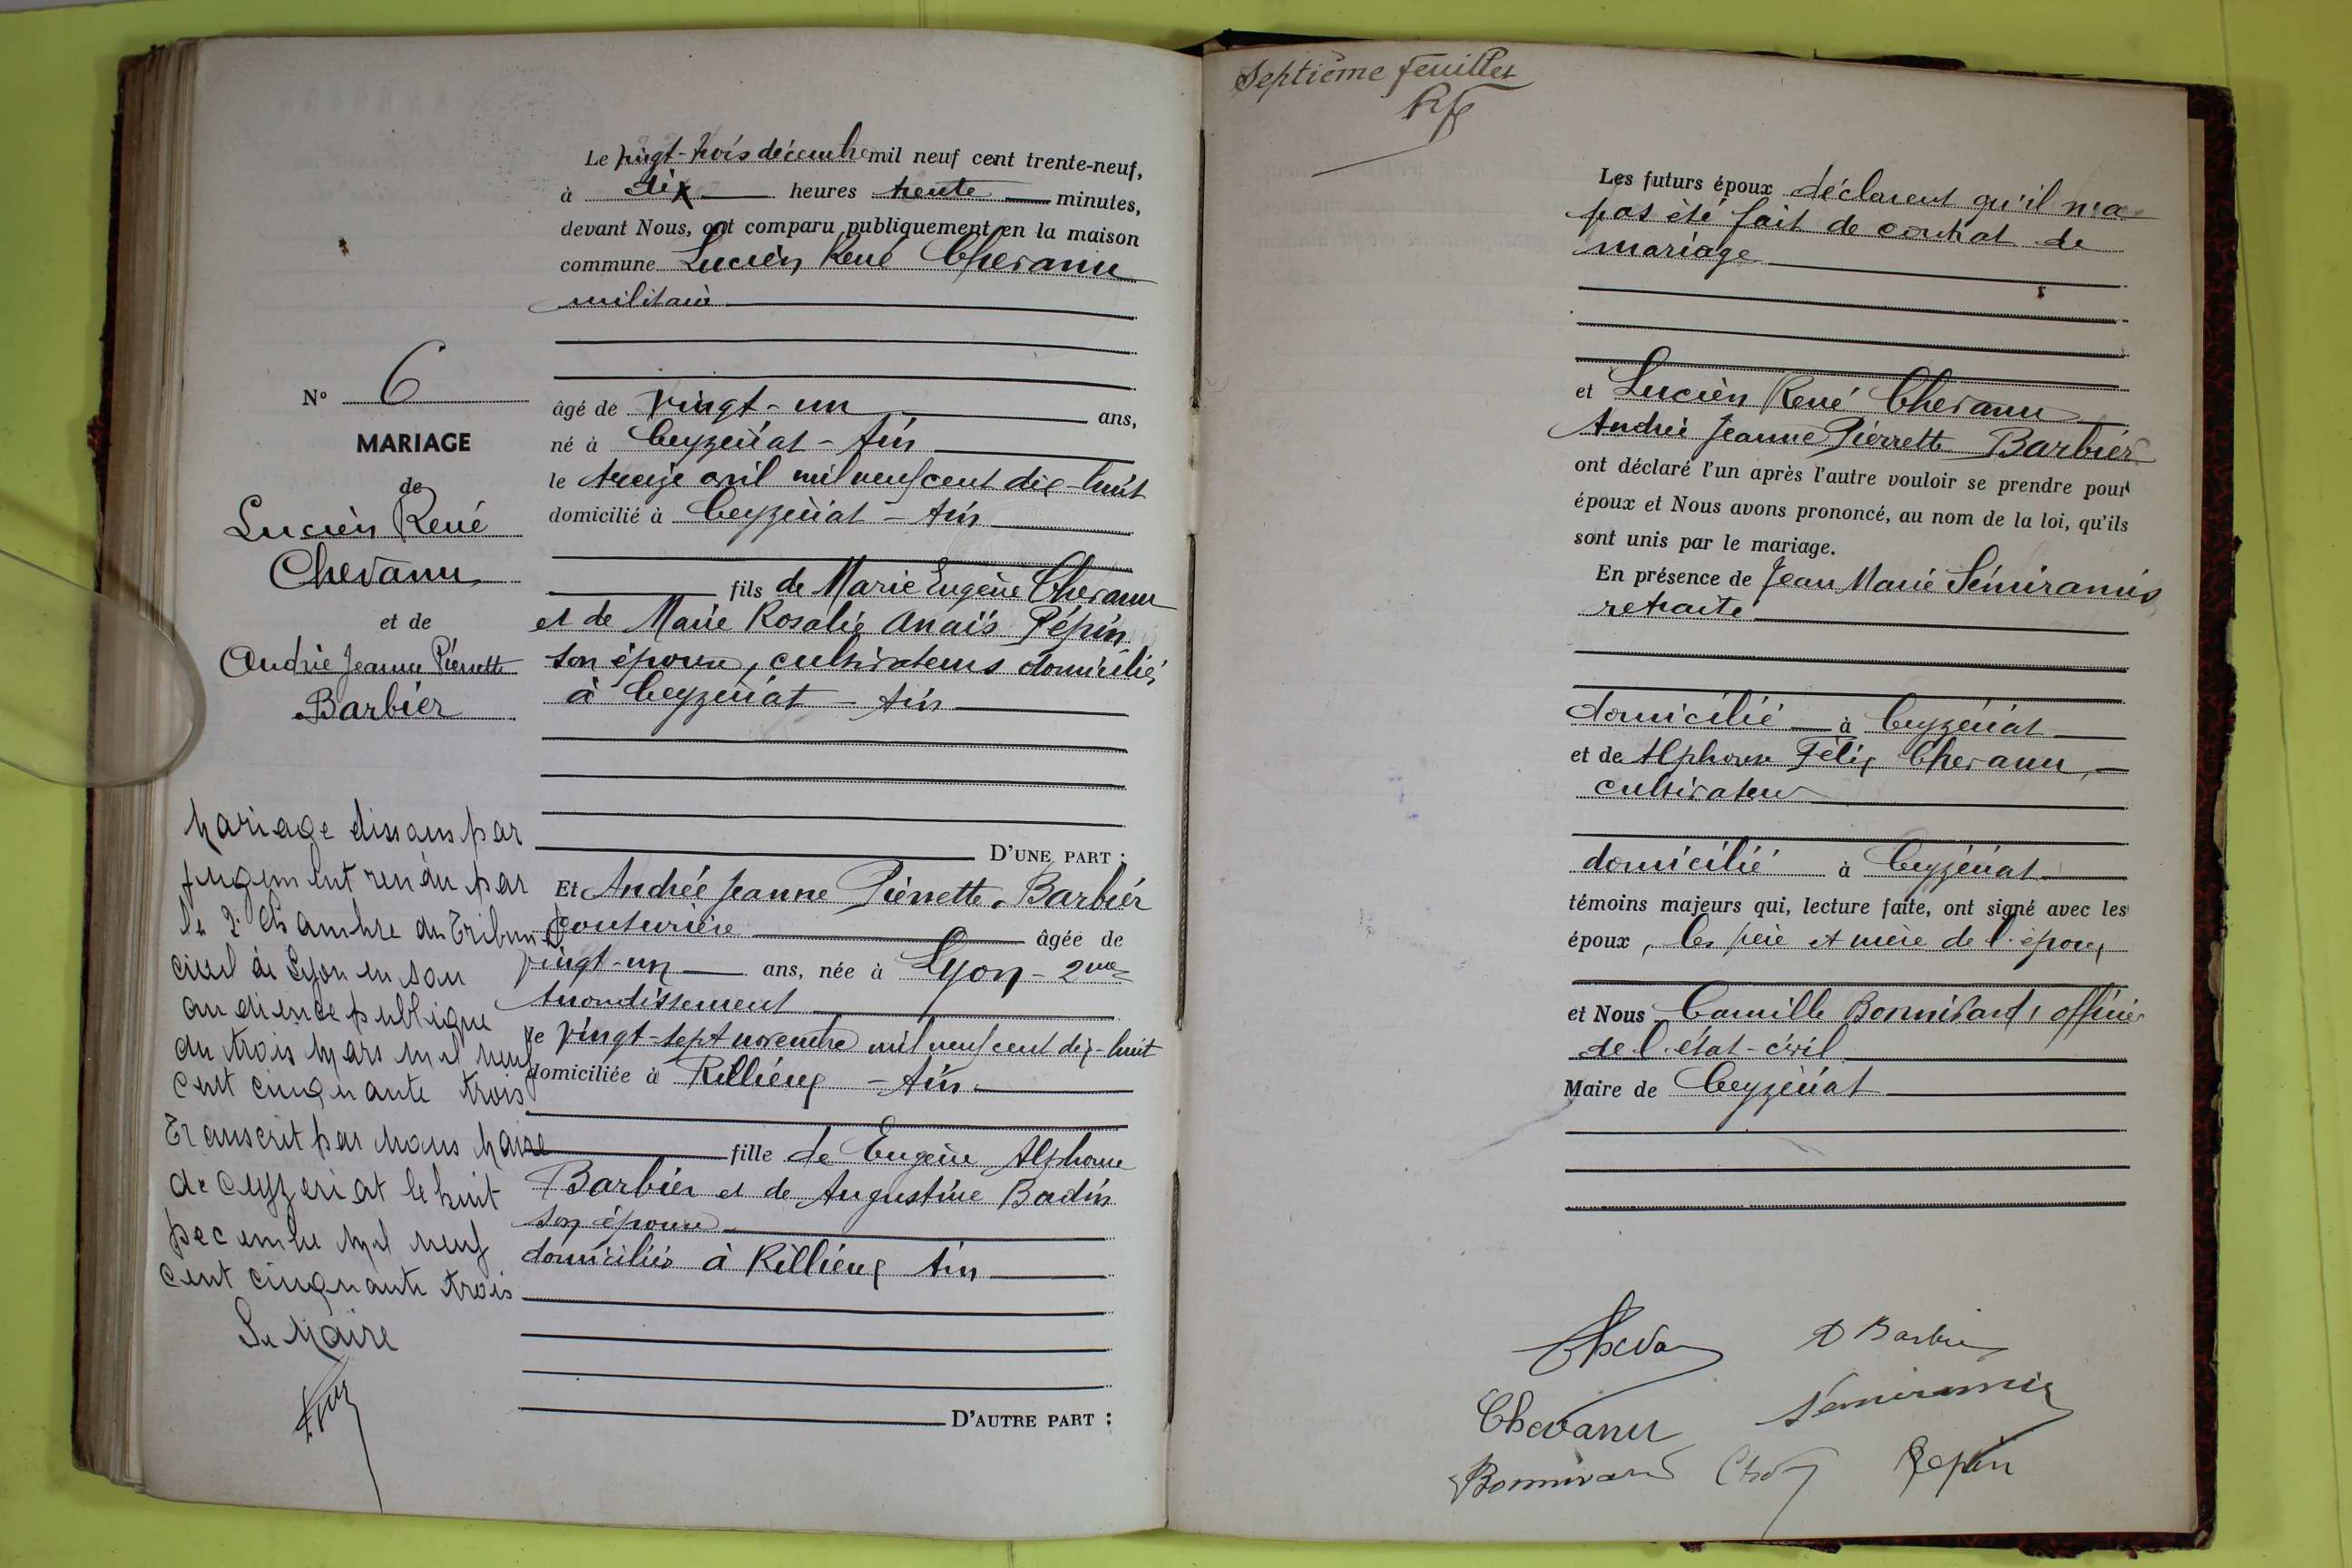 Le vingt-trois décembre mil neuf cent trente-neuf,
à dix heures trente minutes,
devant Nous, ont comparu publiquement en la maison
commune Lucien René Chevanu
militaire
âgé de vingt-un ans,
né à Ceyzériat - Ain
le treize avril mil neuf cent dix-huit
domicilié à Ceyzériat - Ain
fils de Marie Eugène Chevanu
et de Marie Rosalie Anaïs Pépin
son épouse, cultivateurs domiciliés
à Ceyzériat - Ain
D'UNE PART :
Et Andrée Jeanne Pierrette Barbier
couturière âgée de
vingt-un ans, née à Lyon - 2me
Arrondissement
le vingt-sept novembre mil neuf cent dix-huit
domiciliée à Rillieux - Ain
fille de Eugène Alphonse
Barbier et de Augustine Badin
son épouse
domiciliés à Rillieux Ain
D'AUTRE PART :
N° 6
MARIAGE
de
Lucien René
Chevanu
et de
Andrée Jeanne Pierrette
Barbier
Mariage dissous par
jugement rendu par
la 2e Chambre du Tribunal
civil de Lyon en son
audience publique
du trois Mars mil neuf
cent cinquante trois
Transcrit par Nous Maire
de Ceyzeriat le huit
Decembre Mil neuf
cent cinquante trois
Le Maire
Septième feuillet
Les futurs époux déclarent qu'il n'a
pas été fait de contrat de
mariage
et Lucien René Chevanu
Andrée Jeanne Pierrette Barbier
ont déclaré l'un après l'autre vouloir se prendre pour
époux et Nous avons prononcé, au nom de la loi, qu'ils
sont unis par le mariage.
En présence de Jean Marie Sémiramis
retraité
domicilié à Ceyzériat
et de Alphonse Félix Chevanu,
cultivateur
domicilié à Ceyzériat
témoins majeurs qui, lecture faite, ont signé avec les
époux, les père et mère de l'époux
et Nous Camille Bonnivard, officier
de l'état-civil
Maire de Ceyzériat
A Barbier
Chevanu Sémiramis
Bonnivard Pepin